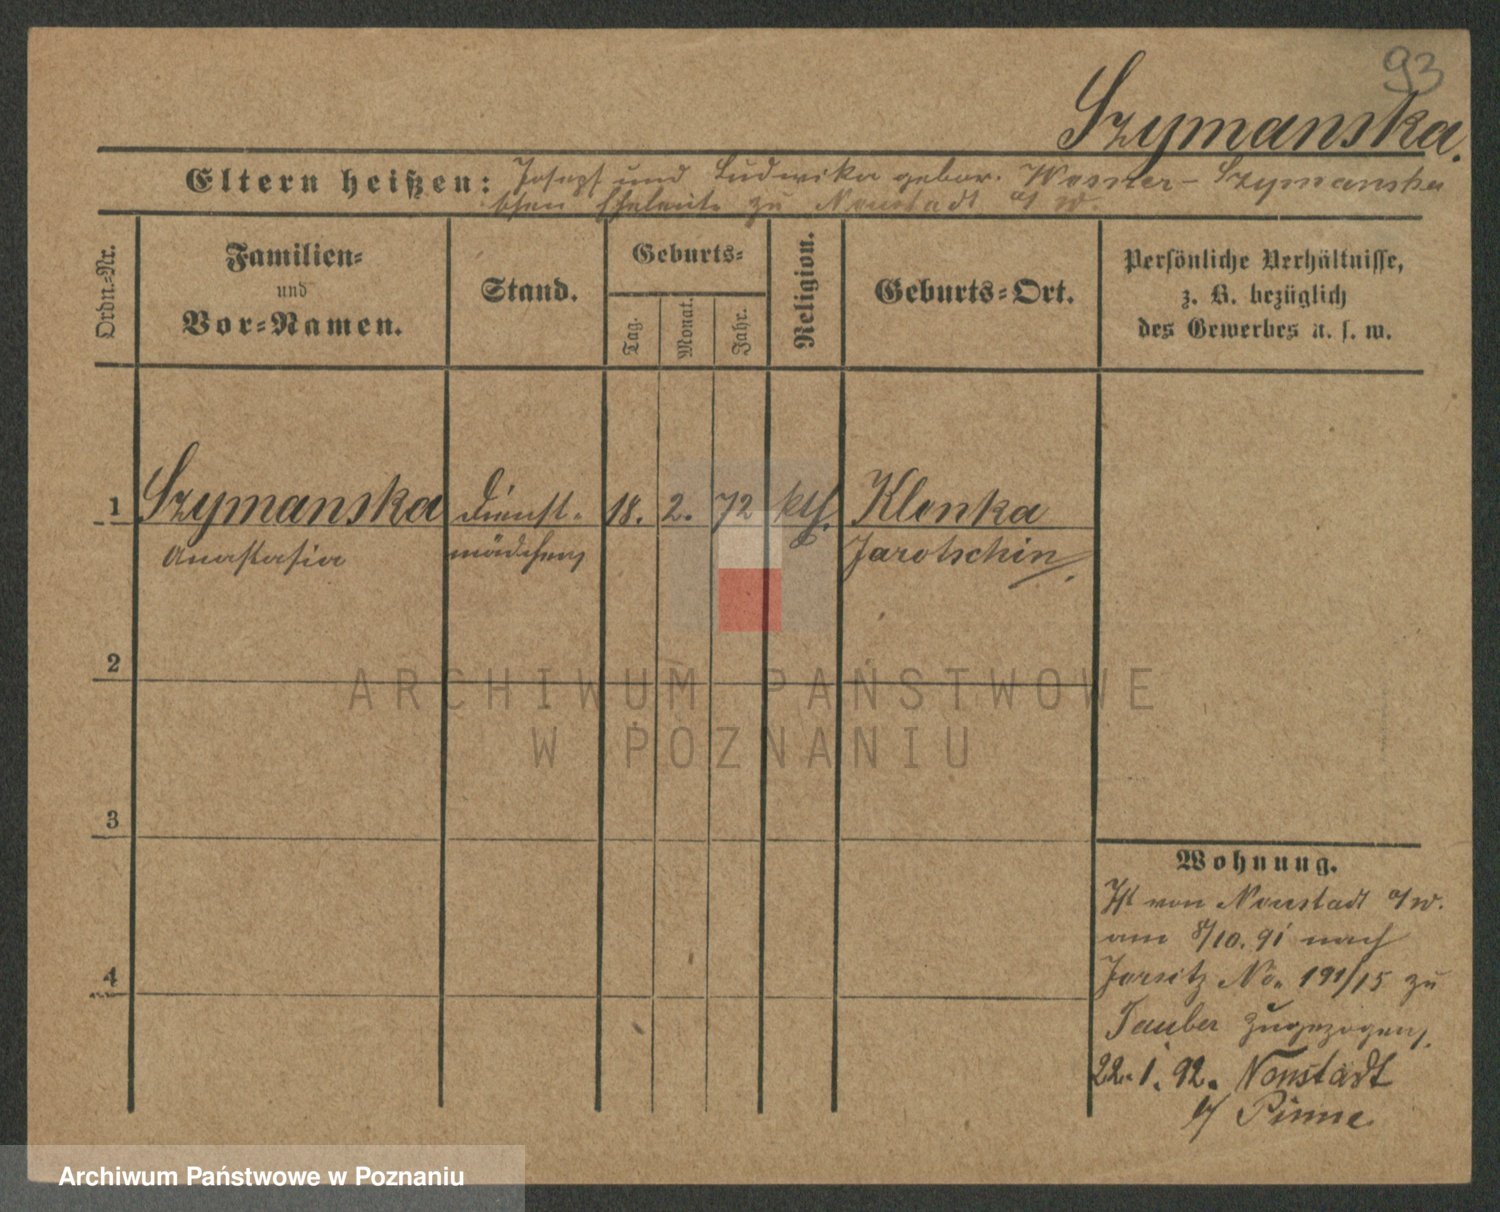 93
Szymanska.
Eltern heißen: Joseph und Ludwika gebor. Wosner - Szymanska
schen Eheleute zu Neustadt a/W.
Ordn.-Nr.
Familien-
und
Vor-Namen.
Stand.
Geburts-
Tag.
Monat.
Jahr.
Religion.
Geburts-Ort.
Persönliche Verhältnisse,
z. B. bezüglich
des Gewerbes u. s. w.
1 Szymanska Dienst- 18. 2. 72 kth. Klenka
Anastasia mädchen Jarotschin
2
ARCHIWUM PAŃSTWOWE
W POZNANIU
3
Wohnung.
Ist von Neustadt a/W.
am 8/10. 91 nach
Jersitz No. 191/15 zu
4
Tauber zugezogen.
22. 1. 92. Neustadt
b/ Pinne.
Archiwum Państwowe w Poznaniu